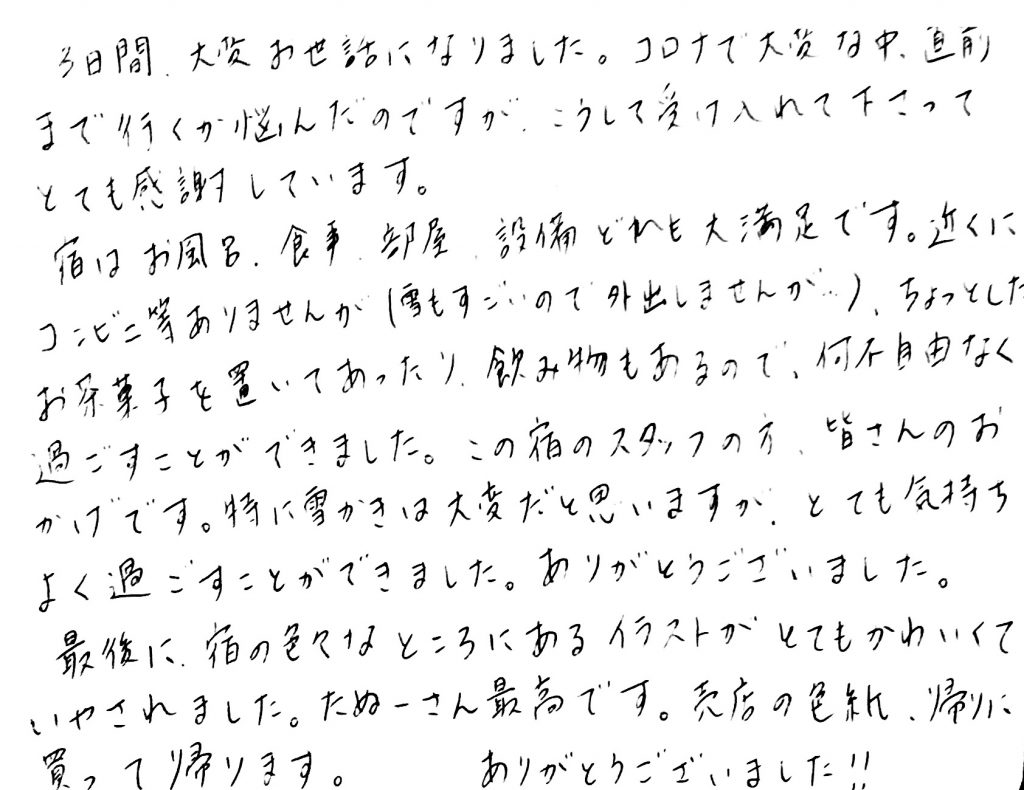 3日間、大変お世話になりました。コロナで大変な中、直前
まで行くか悩んだのですが、こうして受け入れて下さって
とても感謝しています。
宿はお風呂、食事、部屋、設備どれも大満足です。近くに
コンビニ等ありませんが(雪もすごいので外出しませんが…)、ちょっとした
お茶菓子を置いてあったり、飲み物もあるので、何不自由なく
過ごすことができました。この宿のスタッフの方、皆さんのお
かげです。特に雪かきは大変だと思いますが、とても気持ち
よく過ごすことができました。ありがとうございました。
最後に、宿の色々なところにあるイラストがとてもかわいくて
いやされました。たぬーさん最高です。売店の色紙、帰りに
買って帰ります。 ありがとうございました!!